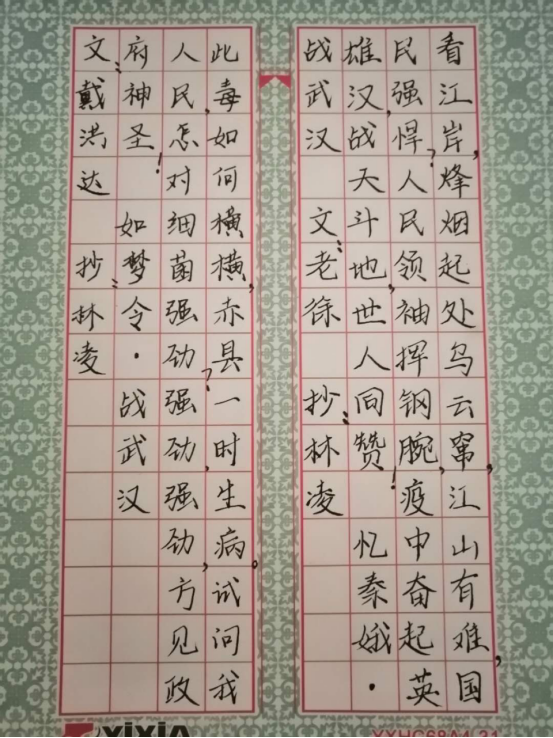 看江岸，烽烟起处乌云窜，江山有难，国
民强悍？人民领袖挥钢腕，疫中奋起英
雄汉，战天斗地，世人同赞！忆秦娥·
战武汉 文：老徐 抄：林凌
此毒如何横横，赤县一时生病。试问我
人民，怎对细菌强劲？强劲，强劲，方见政
府神圣！如梦令·战武汉
文：戴洪达 抄：林凌